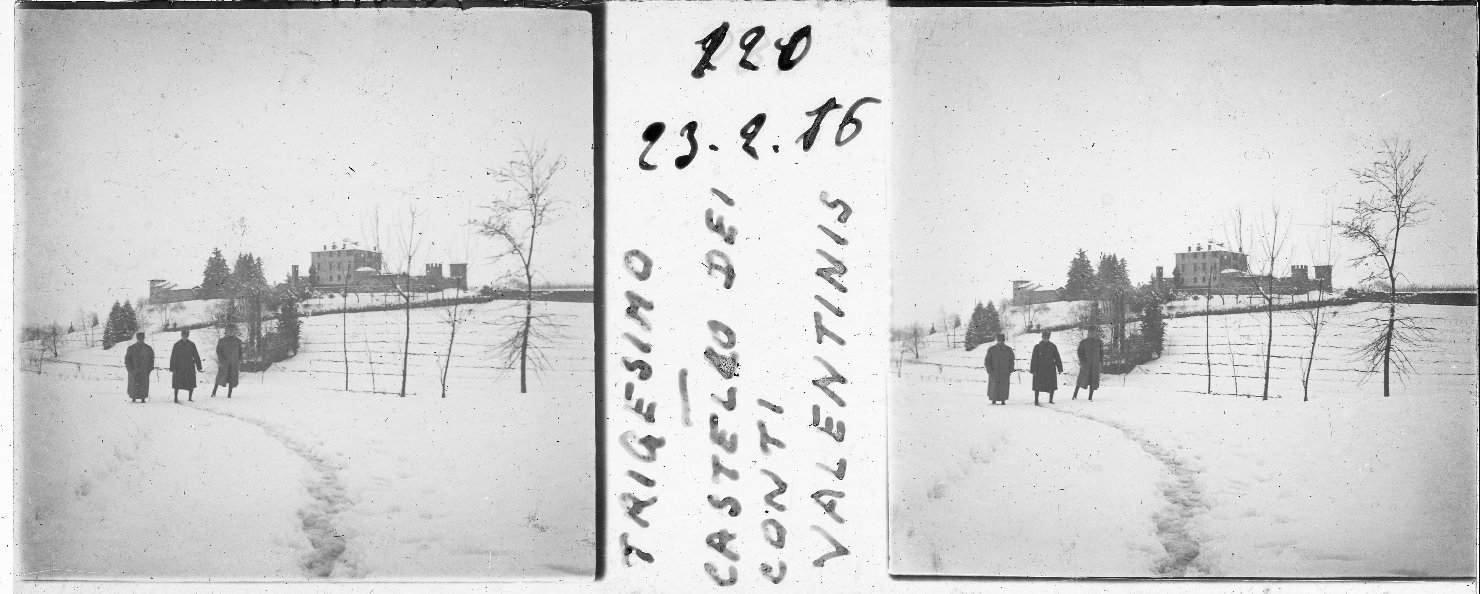 120
23.2.16
TRIGESIMO
CASTELLO DEI
CONTI
VALENTINIS